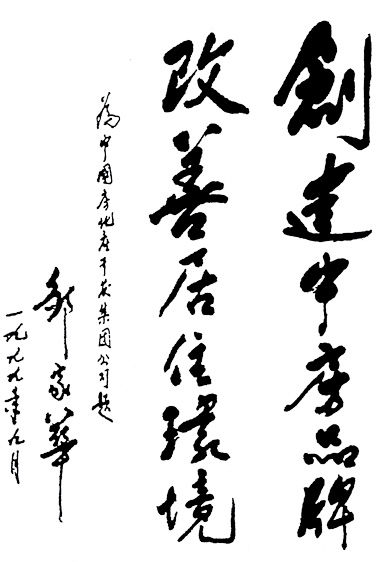 創建中房品牌
改善居住環境
為中國房地產开发集团公司题
邹家華
一九九九年九月